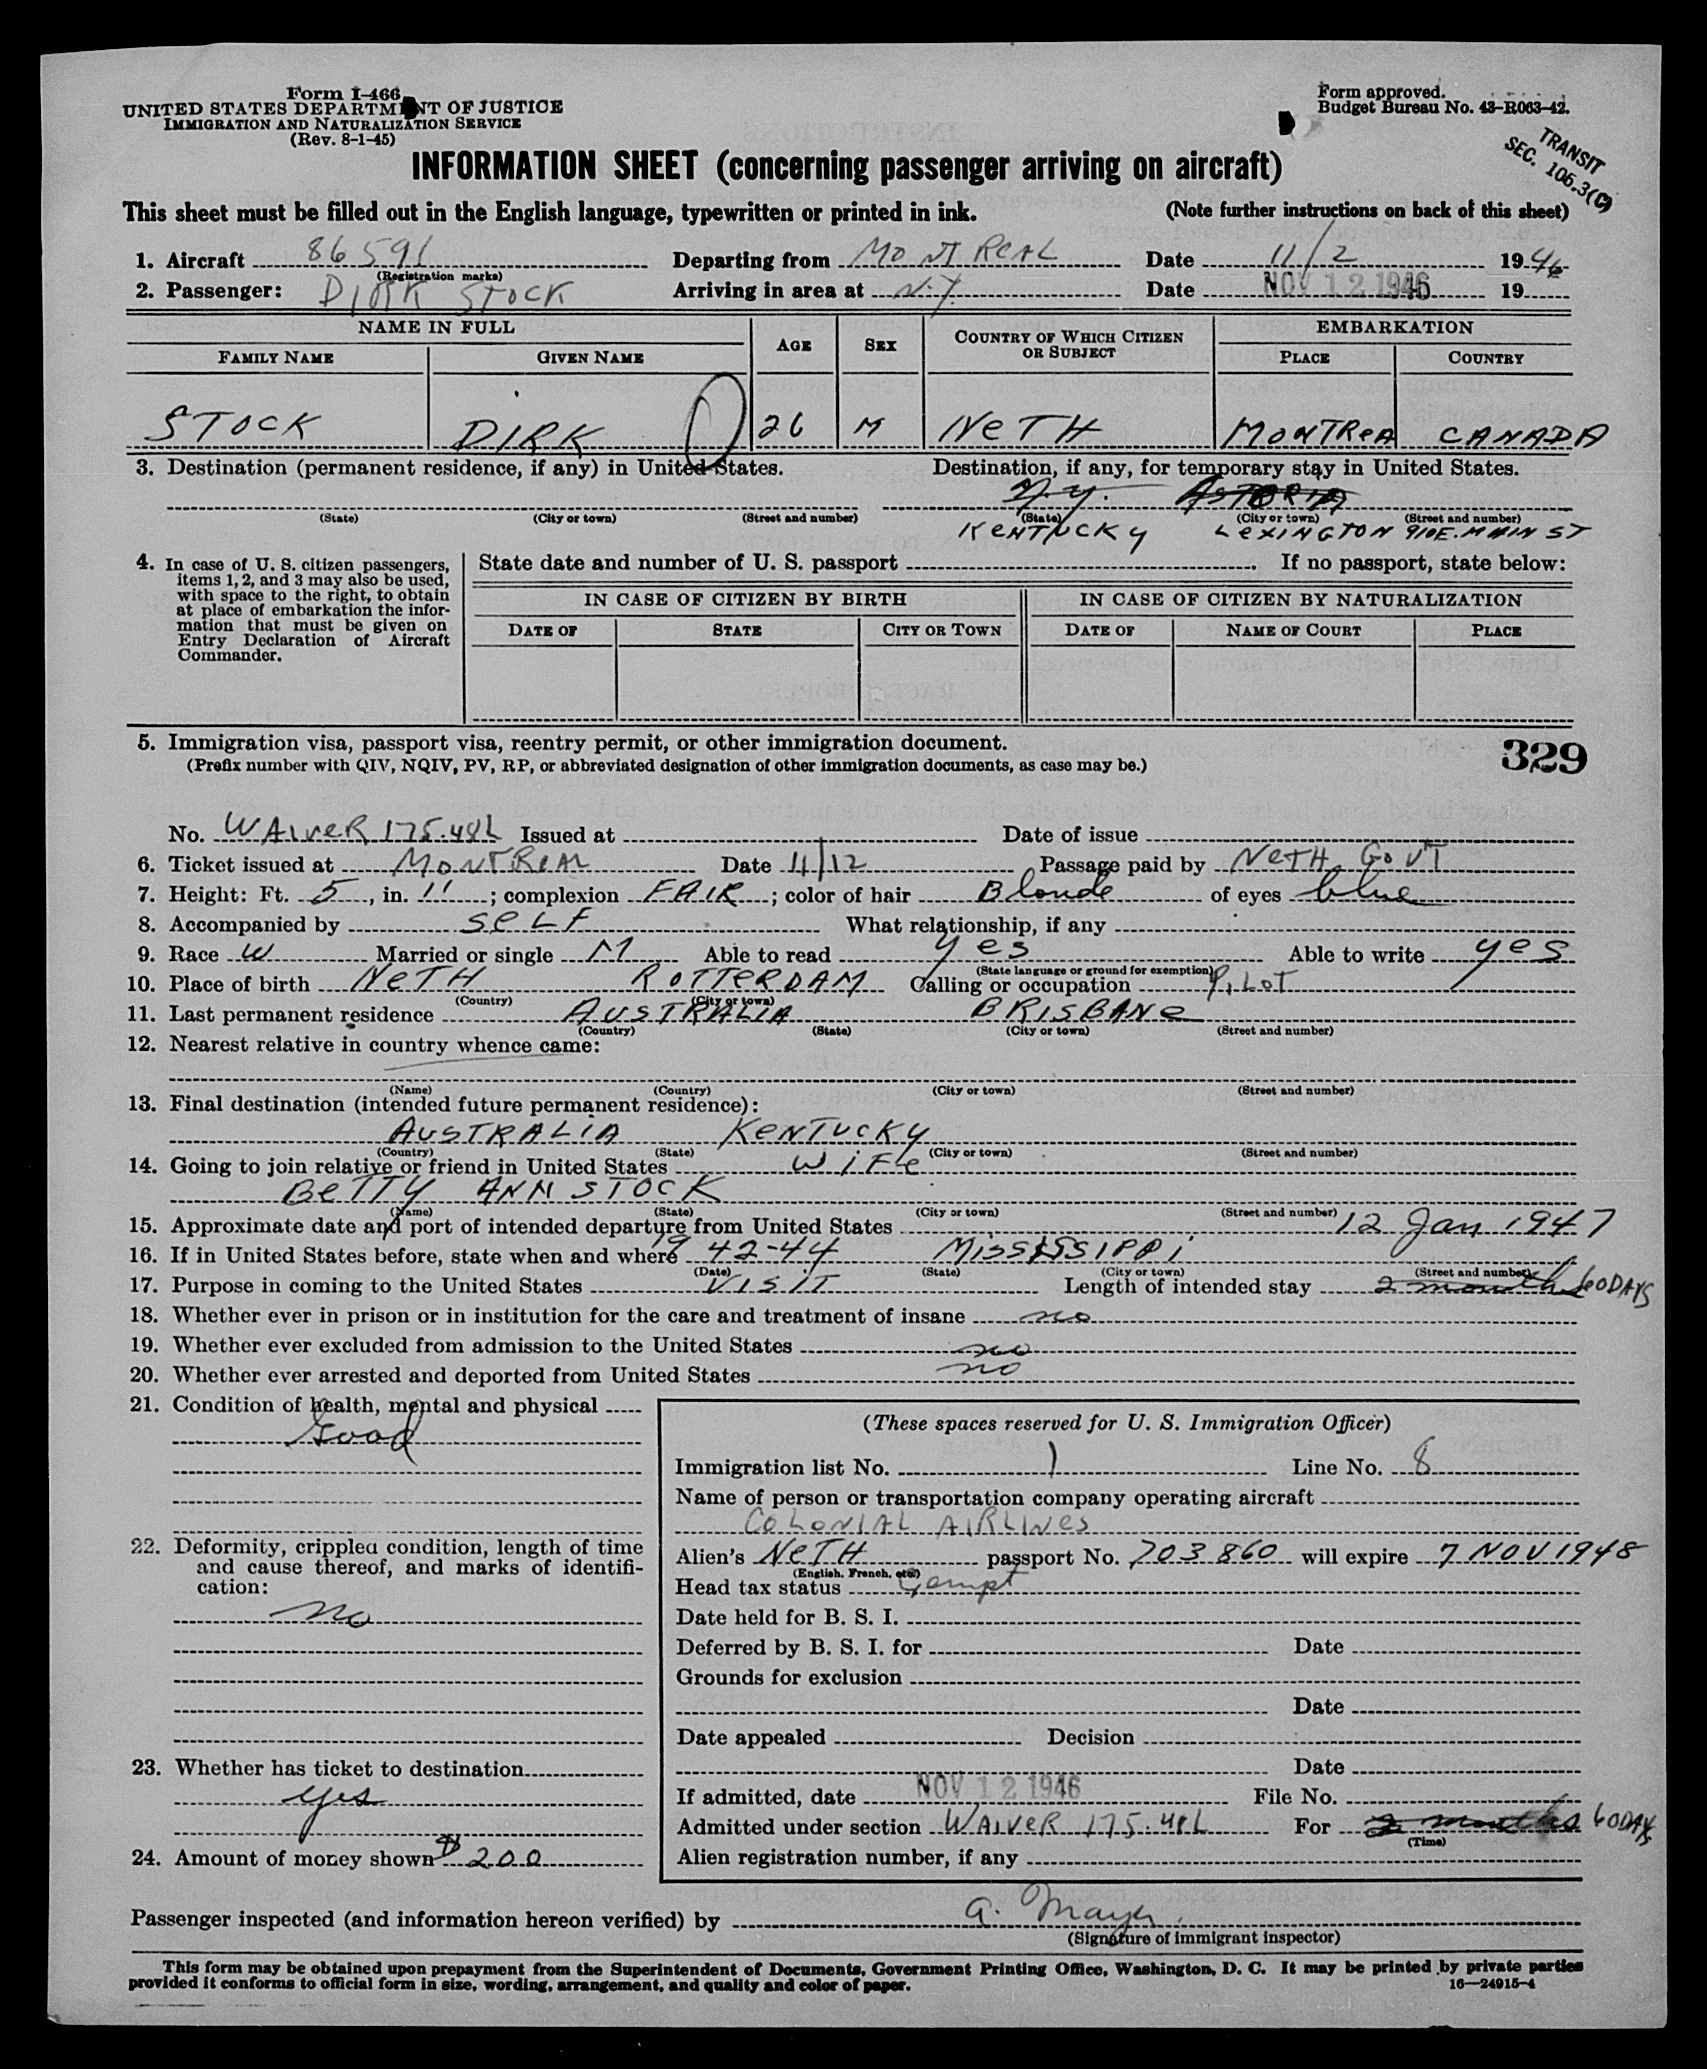 Form I-466
UNITED STATES DEPARTMENT OF JUSTICE
IMMIGRATION AND NATURALIZATION SERVICE
(Rev. 8-1-45)
Form approved.
Budget Bureau No. 43-R063-42.
TRANSIT
SEC. 106.3(C)
INFORMATION SHEET (concerning passenger arriving on aircraft)
This sheet must be filled out in the English language, typewritten or printed in ink. (Note further instructions on back of this sheet)
1. Aircraft 86591 Departing from MONTREAL Date 11/2 1946
(Registration marks)
2. Passenger: DIRK STOCK Arriving in area at N.Y. Date NOV 12 1946 19
NAME IN FULL AGE SEX COUNTRY OF WHICH CITIZEN OR SUBJECT EMBARKATION
FAMILY NAME GIVEN NAME PLACE COUNTRY
STOCK DIRK 26 M NETH MONTREA CANADA
3. Destination (permanent residence, if any) in United States. Destination, if any, for temporary stay in United States.
N.Y. ASTORIA
(State) (City or town) (Street and number) (State) (City or town) (Street and number)
KENTUCKY LEXINGTON 910E. MAIN ST
4. In case of U. S. citizen passengers, items 1, 2, and 3 may also be used, with space to the right, to obtain at place of embarkation the information that must be given on Entry Declaration of Aircraft Commander.
State date and number of U. S. passport . If no passport, state below:
IN CASE OF CITIZEN BY BIRTH IN CASE OF CITIZEN BY NATURALIZATION
DATE OF STATE CITY OR TOWN DATE OF NAME OF COURT PLACE
5. Immigration visa, passport visa, reentry permit, or other immigration document.
(Prefix number with QIV, NQIV, PV, RP, or abbreviated designation of other immigration documents, as case may be.)
329
No. WAIVER 175.48L Issued at Date of issue
6. Ticket issued at MONTREAL Date 11/12 Passage paid by NETH. GOVT
7. Height: Ft. 5, in. 11; complexion FAIR; color of hair Blonde of eyes blue
8. Accompanied by SELF What relationship, if any
9. Race W Married or single M Able to read yes Able to write yes
(State language or ground for exemption)
10. Place of birth NETH ROTTERDAM Calling or occupation PILOT
(Country) (City or town)
11. Last permanent residence AUSTRALIA BRISBANE
(Country) (State) (City or town) (Street and number)
12. Nearest relative in country whence came:
(Name) (Country) (City or town) (Street and number)
13. Final destination (intended future permanent residence):
AUSTRALIA KENTUCKY
(Country) (State) (City or town) (Street and number)
14. Going to join relative or friend in United States WIFE
BETTY ANN STOCK
(Name) (State) (City or town) (Street and number)
15. Approximate date and port of intended departure from United States 12 Jan 1947
16. If in United States before, state when and where 1942-44 MISSISSIPPI
(Date) (State) (City or town) (Street and number)
17. Purpose in coming to the United States VISIT Length of intended stay 2 months 60 DAYS
18. Whether ever in prison or in institution for the care and treatment of insane no
19. Whether ever excluded from admission to the United States no
20. Whether ever arrested and deported from United States no
21. Condition of health, mental and physical
Good
22. Deformity, crippled condition, length of time and cause thereof, and marks of identification:
no
23. Whether has ticket to destination
yes
24. Amount of money shown $200
(These spaces reserved for U. S. Immigration Officer)
Immigration list No. 1 Line No. 8
Name of person or transportation company operating aircraft
COLONIAL AIRLINES
Alien's NETH passport No. 703860 will expire 7 NOV 1948
(English, French, etc.)
Head tax status Exempt
Date held for B. S. I.
Deferred by B. S. I. for Date
Grounds for exclusion
Date
Date appealed Decision
Date
If admitted, date NOV 12 1946 File No.
Admitted under section WAIVER 175.48L For 2 months 60 DAYS
(Time)
Alien registration number, if any
Passenger inspected (and information hereon verified) by A. Mayer
(Signature of immigrant inspector)
This form may be obtained upon prepayment from the Superintendent of Documents, Government Printing Office, Washington, D. C. It may be printed by private parties
provided it conforms to official form in size, wording, arrangement, and quality and color of paper. 16—24915-4